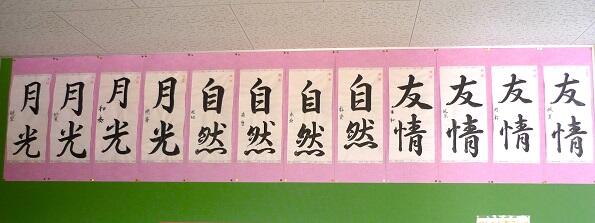 友情
友情
友情
友情
自然
自然
自然
自然
月光
月光
月光
月光